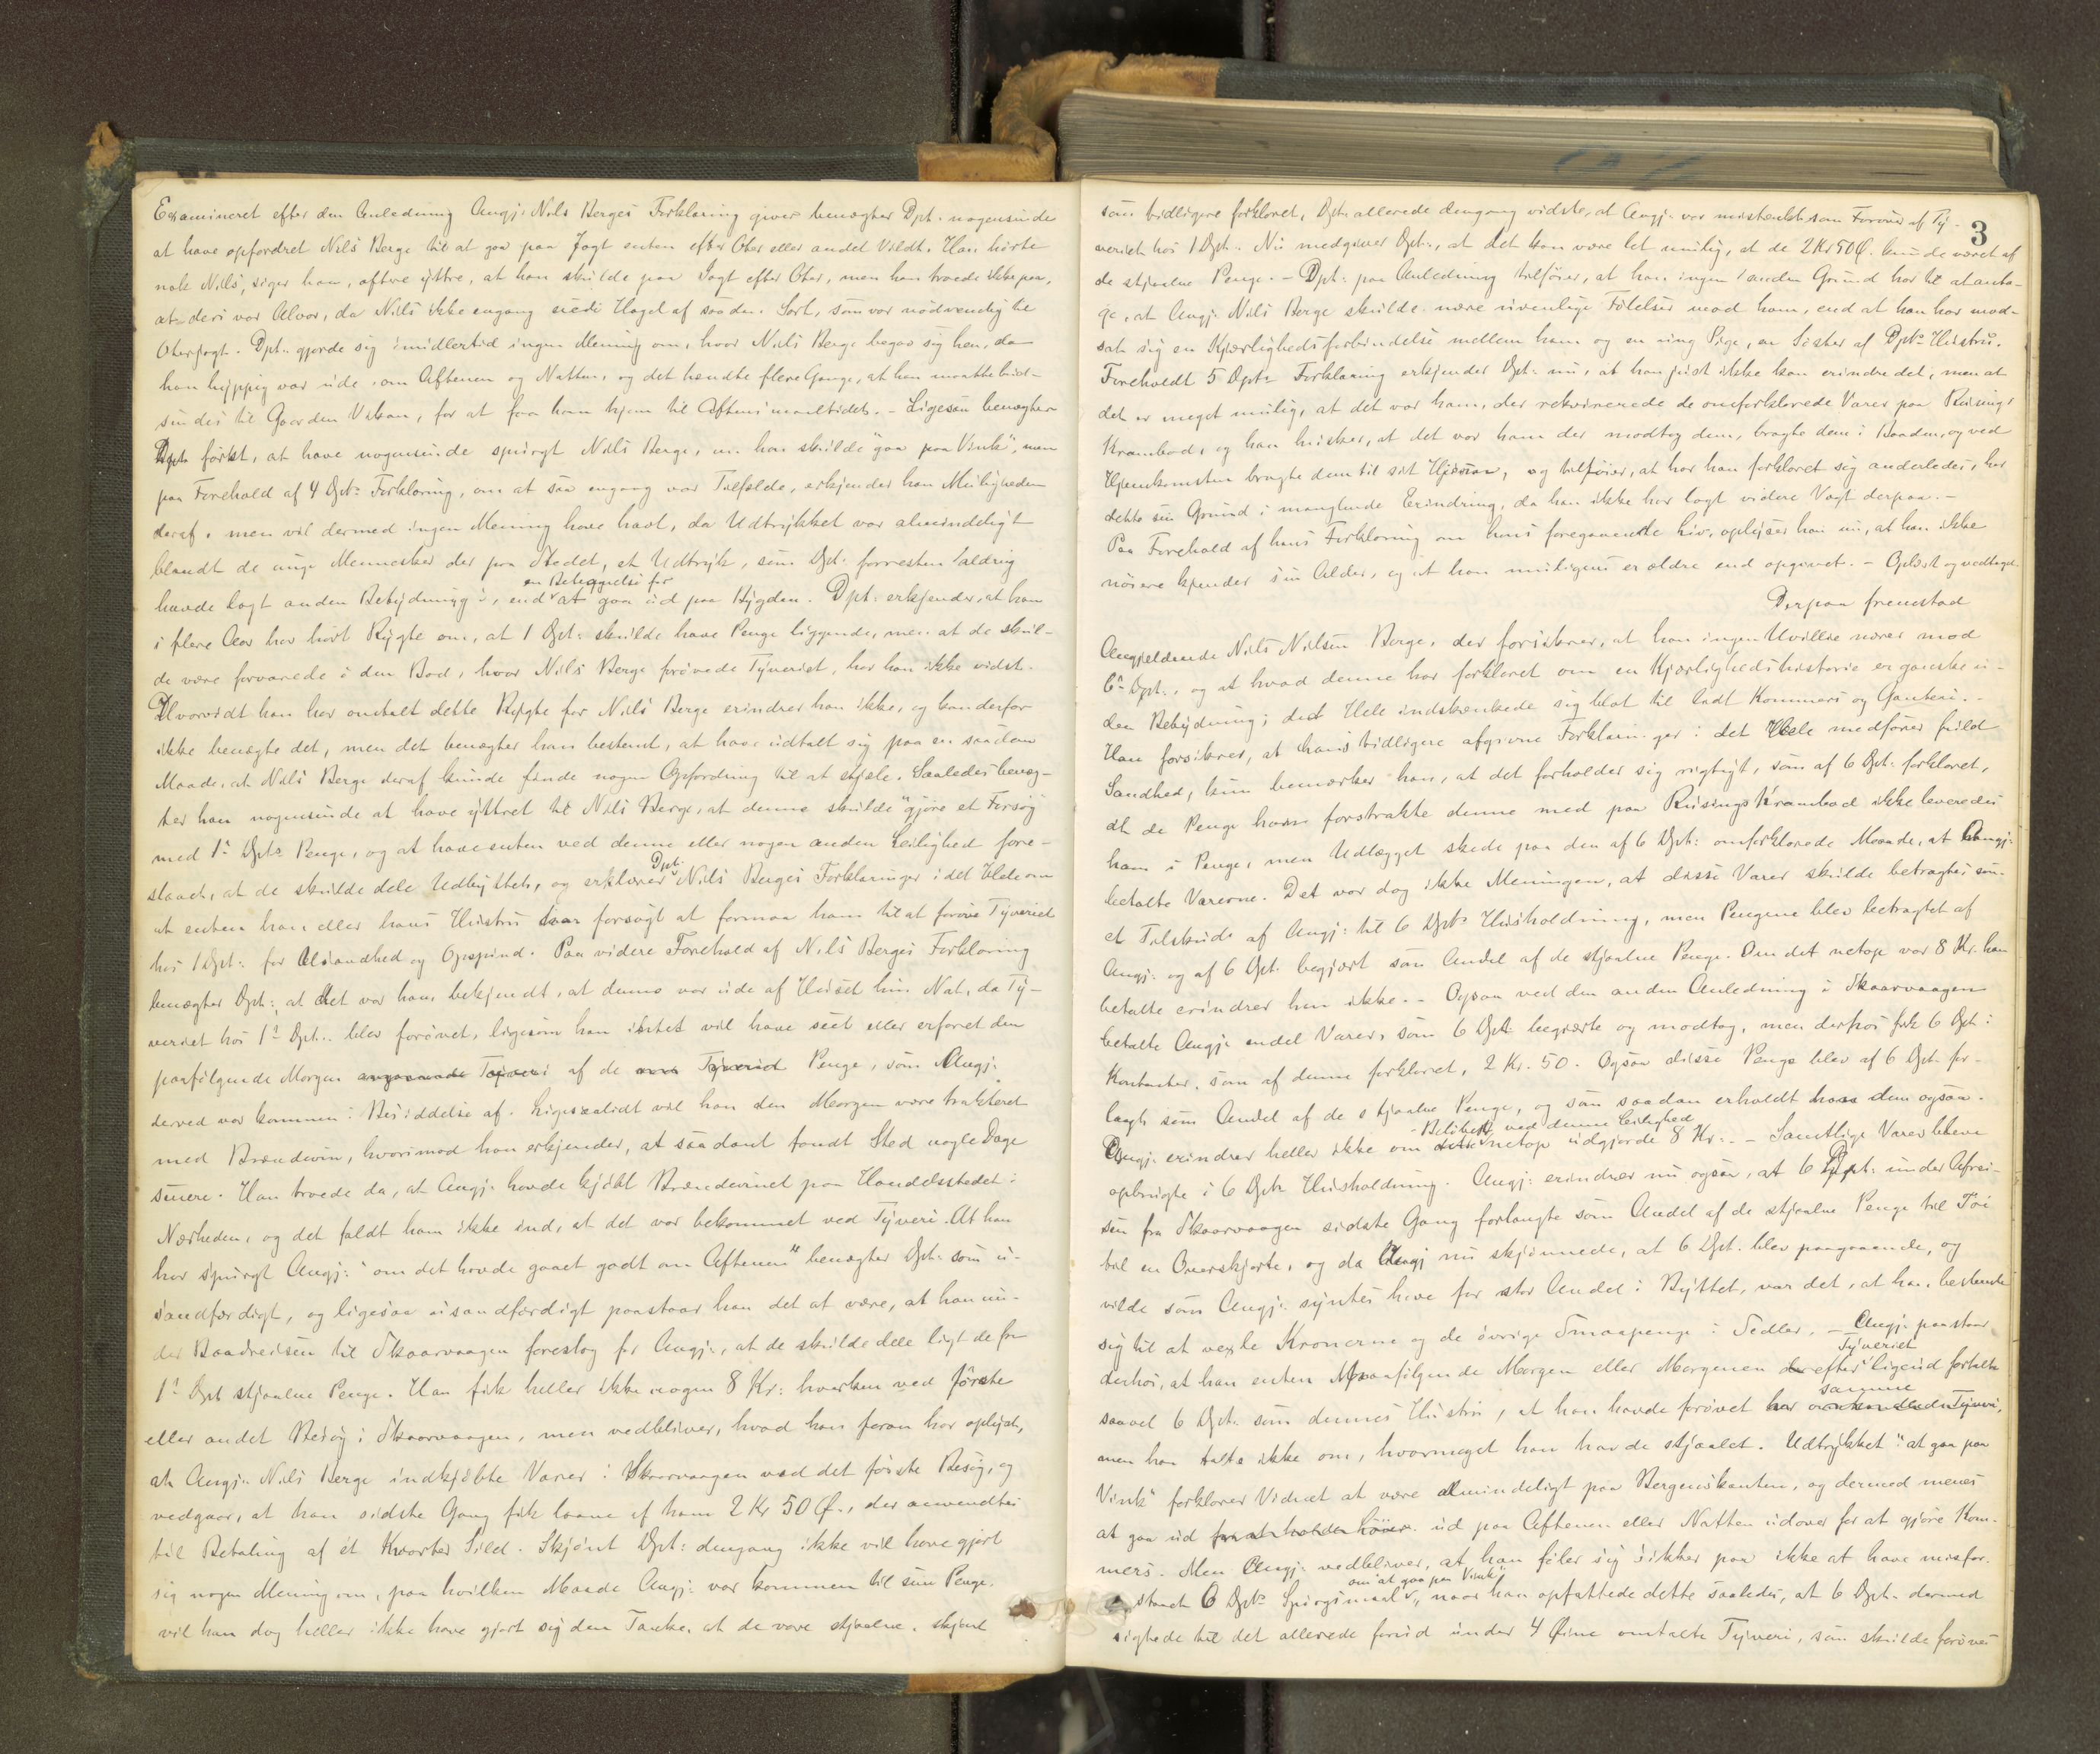 Examineret efter den Anledning Angj. Nils Berges Forklaring giver benægter Dpt. nogensinde
at have opfordret Nils Berge til at gaa paa Jagt enten efter Oter eller andet Vildt. Han hørte
nok Nils, siger han, oftere yttre, at han skulde paa Jagt efter Oter, men han troede ikke paa,
at deri var Alvor, da Nils ikke engang eiede Hagel af saadan Sort, som var nødvendig til
Oterjagt. Dpt. gjorde sig imidlertid ingen Mening om, hvor Nils Berge begav sig hen, da
han hyppig var ude om Aftenen og Natten, og det hændte flere Gange, at han maatte bud-
sendes til Gaarden Vikan, for at faa ham hjem til Aftensmaaltidet. - Ligesaa benægter
Dpt. først, at have nogensinde spurgt Nils Berge, om han skulde "gaa paa Vink", men
paa Forehold af 4 Dpts Forklaring, om at saa engang var Tilfælde, erkjender han Muligheden
deraf, men vil dermed ingen Mening have havt, da Udtrykket var almindeligt
blandt de unge Mennesker der paa Stedet, et Udtryk, som Dpt. forresten aldrig
en Betegnelse for
havde lagt anden Betydning i, end at gaa ud paa Bygden. Dpt. erkjender, at han
i flere Aar har hørt Rygte om, at 1 Dpt. skulde have Penge liggende, men at de skul-
de være forvarede i den Bod, hvor Nils Berge prøvede Tyveriet, har han ikke vidst.
Hvorvidt han har omtalt dette Rygte for Nils Berge erindrer han ikke, og kan derfor
ikke benægte det, men det benægter han bestemt, at have udtalt sig paa en saadan
Maade, at Nils Berge deraf kunde finde nogen Opfordring til at stjæle. Saaledes benæg-
ter han nogensinde at have yttret til Nils Berge, at denne skulde "gjøre et Forsøg"
med 1ste Dpts Penge, og at have enten ved denne eller nogen anden Leilighed fore-
Dpt.
slaaet, at de skulde dele Udbyttet, og erklærer Nils Berges Forklaringer i det Hele om
at enten han eller hans Hustru har forsøgt at formaa ham til at forøve Tyveriet
hos 1 Dpt. for Usandhed og Opspind. Paa videre Forehold af Nils Berges Forklaring
benægter Dpt., at det var ham bekjendt, at denne var ude af Huset hin Nat, da Ty-
veriet hos 1ste Dpt. blev forøvet, ligesom han intet vil have seet eller erfaret den
paafølgende Morgen af de Penge, som Angj.
derved var kommen i Besiddelse af. Ligesaalidt vil han den Morgen være trakteret
med Brændevin, hvorimod han erkjender, at saadant fandt Sted nogle Dage
senere. Han troede da, at Angj. havde kjøbt Brændevinet paa Handelsstedet i
Nærheden, og det faldt ham ikke ind, at det var bekommet ved Tyveri. At han
har spurgt Angj. "om det havde gaaet godt om Aftenen" benægter Dpt. som u-
sandfærdigt, og ligesaa usandfærdigt paastaar han det at være, at han un-
der Baadreisen til Skaarvaagen foreslog for Angj., at de skulde dele ligt de fra
1ste Dpt. stjaalne Penge. Han fik heller ikke nogen 8 Kr. hverken ved første
eller andet Besøg i Skaarvaagen, men vedbliver, hvad han foran har oplyst,
at Angj. Nils Berge indkjøbte Varer i Skaarvaagen ved det første Besøg, og
vedgaar, at han sidste Gang fik laane af ham 2 Kr 50 Ø., der anvendtes
til Betaling af et Kvarter Sild. Skjønt Dpt. dengang ikke vil have gjort
sig nogen Mening om, paa hvilken Maade Angj. var kommen til sine Penge,
vil han dog heller ikke have gjort sig den Tanke, at de vare stjaalne, skjønt
3
som tidligere forklaret, Dpt. allerede dengang vidste, at Angj. var mistænkt som Forøver af Ty-
veriet hos 1 Dpt. Nu medgiver Dpt., at det kan være let mulig, at de 2 Kr 50 Ø. kunde været af
de stjaalne Penge. - Dpt. paa Anledning tilføier, at han ingen anden Grund har til at anta-
ge, at Angj. Nils Berge skulde nære uvenlige Følelser mod ham, end at han har mod-
sat sig en Kjærlighedsforbindelse mellem ham og en ung Pige, en Søster af Dpts Hustru.
Foreholdt 5 Dpts Forklaring erkjender Dpt. nu, at han just ikke kan erindre det, men at
det er meget mulig, at det var ham, der rekvirerede de omforklarede Varer paa Rusings
Krambod, og han husker, at det var ham der modtog dem, bragte dem i Baaden, og ved
Hjemkomsten bragte dem til sit Hjem, og tilføier, at har han forklaret sig anderledes, har
dette sin Grund i manglende Erindring, da han ikke har lagt videre Vægt derpaa. -
Paa Forehold af hans Forklaring om hans foregaaende Liv, oplyser han nu, at han ikke
nøiere kjender sin Alder, og at han muligens er ældre end opgivet. - Oplæst og vedtaget.
Derpaa fremstod
Angjeldende Nils Nilsen Berge, der forsikrer, at han ingen Uvillie nærer mod
6te Dpt., og at hvad denne har forklaret om en Kjærlighedshistorie er ganske u-
den Betydning; det Hele indskrænkede sig blot til lidt Kommers og Fanteri. -
Han forsikrer, at hans tidligere afgivne Forklaringer i det Hele medfører fuld
Sandhed, kun bemærker han, at det forholder sig rigtigt, som af 6 Dpt. forklaret,
at de Penge han forstrakte denne med paa Rusings Krambod ikke leveredes
ham i Penge, men Udlægget skede paa den af 6 Dpt. omforklarede Maade, at Angj.
betalte Varerne. Det var dog ikke Meningen, at disse Varer skulde betragtes som
et Tilskud af Angj. til 6 Dpts Husholdning, men Pengene blev betragtet af
Angj. og af 6 Dpt. begjært som Andel af de stjaalne Penge. Om det netop var 8 Kr. han
betalte erindrer han ikke. - Ogsaa ved den anden Anledning i Skaarvaagen
betalte Angj. endel Varer, som 6 Dpt. begjærte og modtog, men derhos fik 6 Dpt. i
Kontanter, som af denne forklaret, 2 Kr. 50. Ogsaa disse Penge blev af 6 Dpt. for-
langt som Andel af de stjaalne Penge, og som saadan erholdt han dem ogsaa.
Beløbet ved denne Leilighed
Angj. erindrer heller ikke om netop udgjorde 8 Kr. - Samtlige Varer bleve
opbrugte i 6 Dpts Husholdning. Angj. erindrer nu ogsaa, at 6 Dpt. under Afrei-
sen fra Skaarvaagen sidste Gang forlangte som Andel af de stjaalne Penge til Tøi
til en Overskjorte, og da Angj nu skjønnede, at 6 Dpt. blev paagaaende, og
vilde som Angj. syntes have for stor Andel i Byttet, var det, at han bestemte
sig til at vexle Kronerne og de øvrige Smaapenge i Sedler. - Angj. paastaar
Tyveriet
derhos, at han enten paafølgende Morgen eller Morgenen efter ligend fortalte
samme
saavel 6 Dpt. som dennes Hustru, at han havde forøvet Tyveri,
men han talte ikke om, hvormeget han havde stjaalet. Udtrykket "at gaa paa
Vink" forklarer Vidnet at være almindeligt paa Bergenskanten, og dermed menes
at gaa ud ud paa Aftenen eller Natten udover for at gjøre Kom-
mers. Men Angj. vedbliver, at han føler sig sikker paa ikke at have misfor-
om "at gaa paa Vink"
staaet 6 Dpts Spørgsmaal, naar han opfattede dette saaledes, at 6 Dpt. dermed
sigtede til det allerede forud under 4 Øine omtalte Tyveri, som skulde forøves